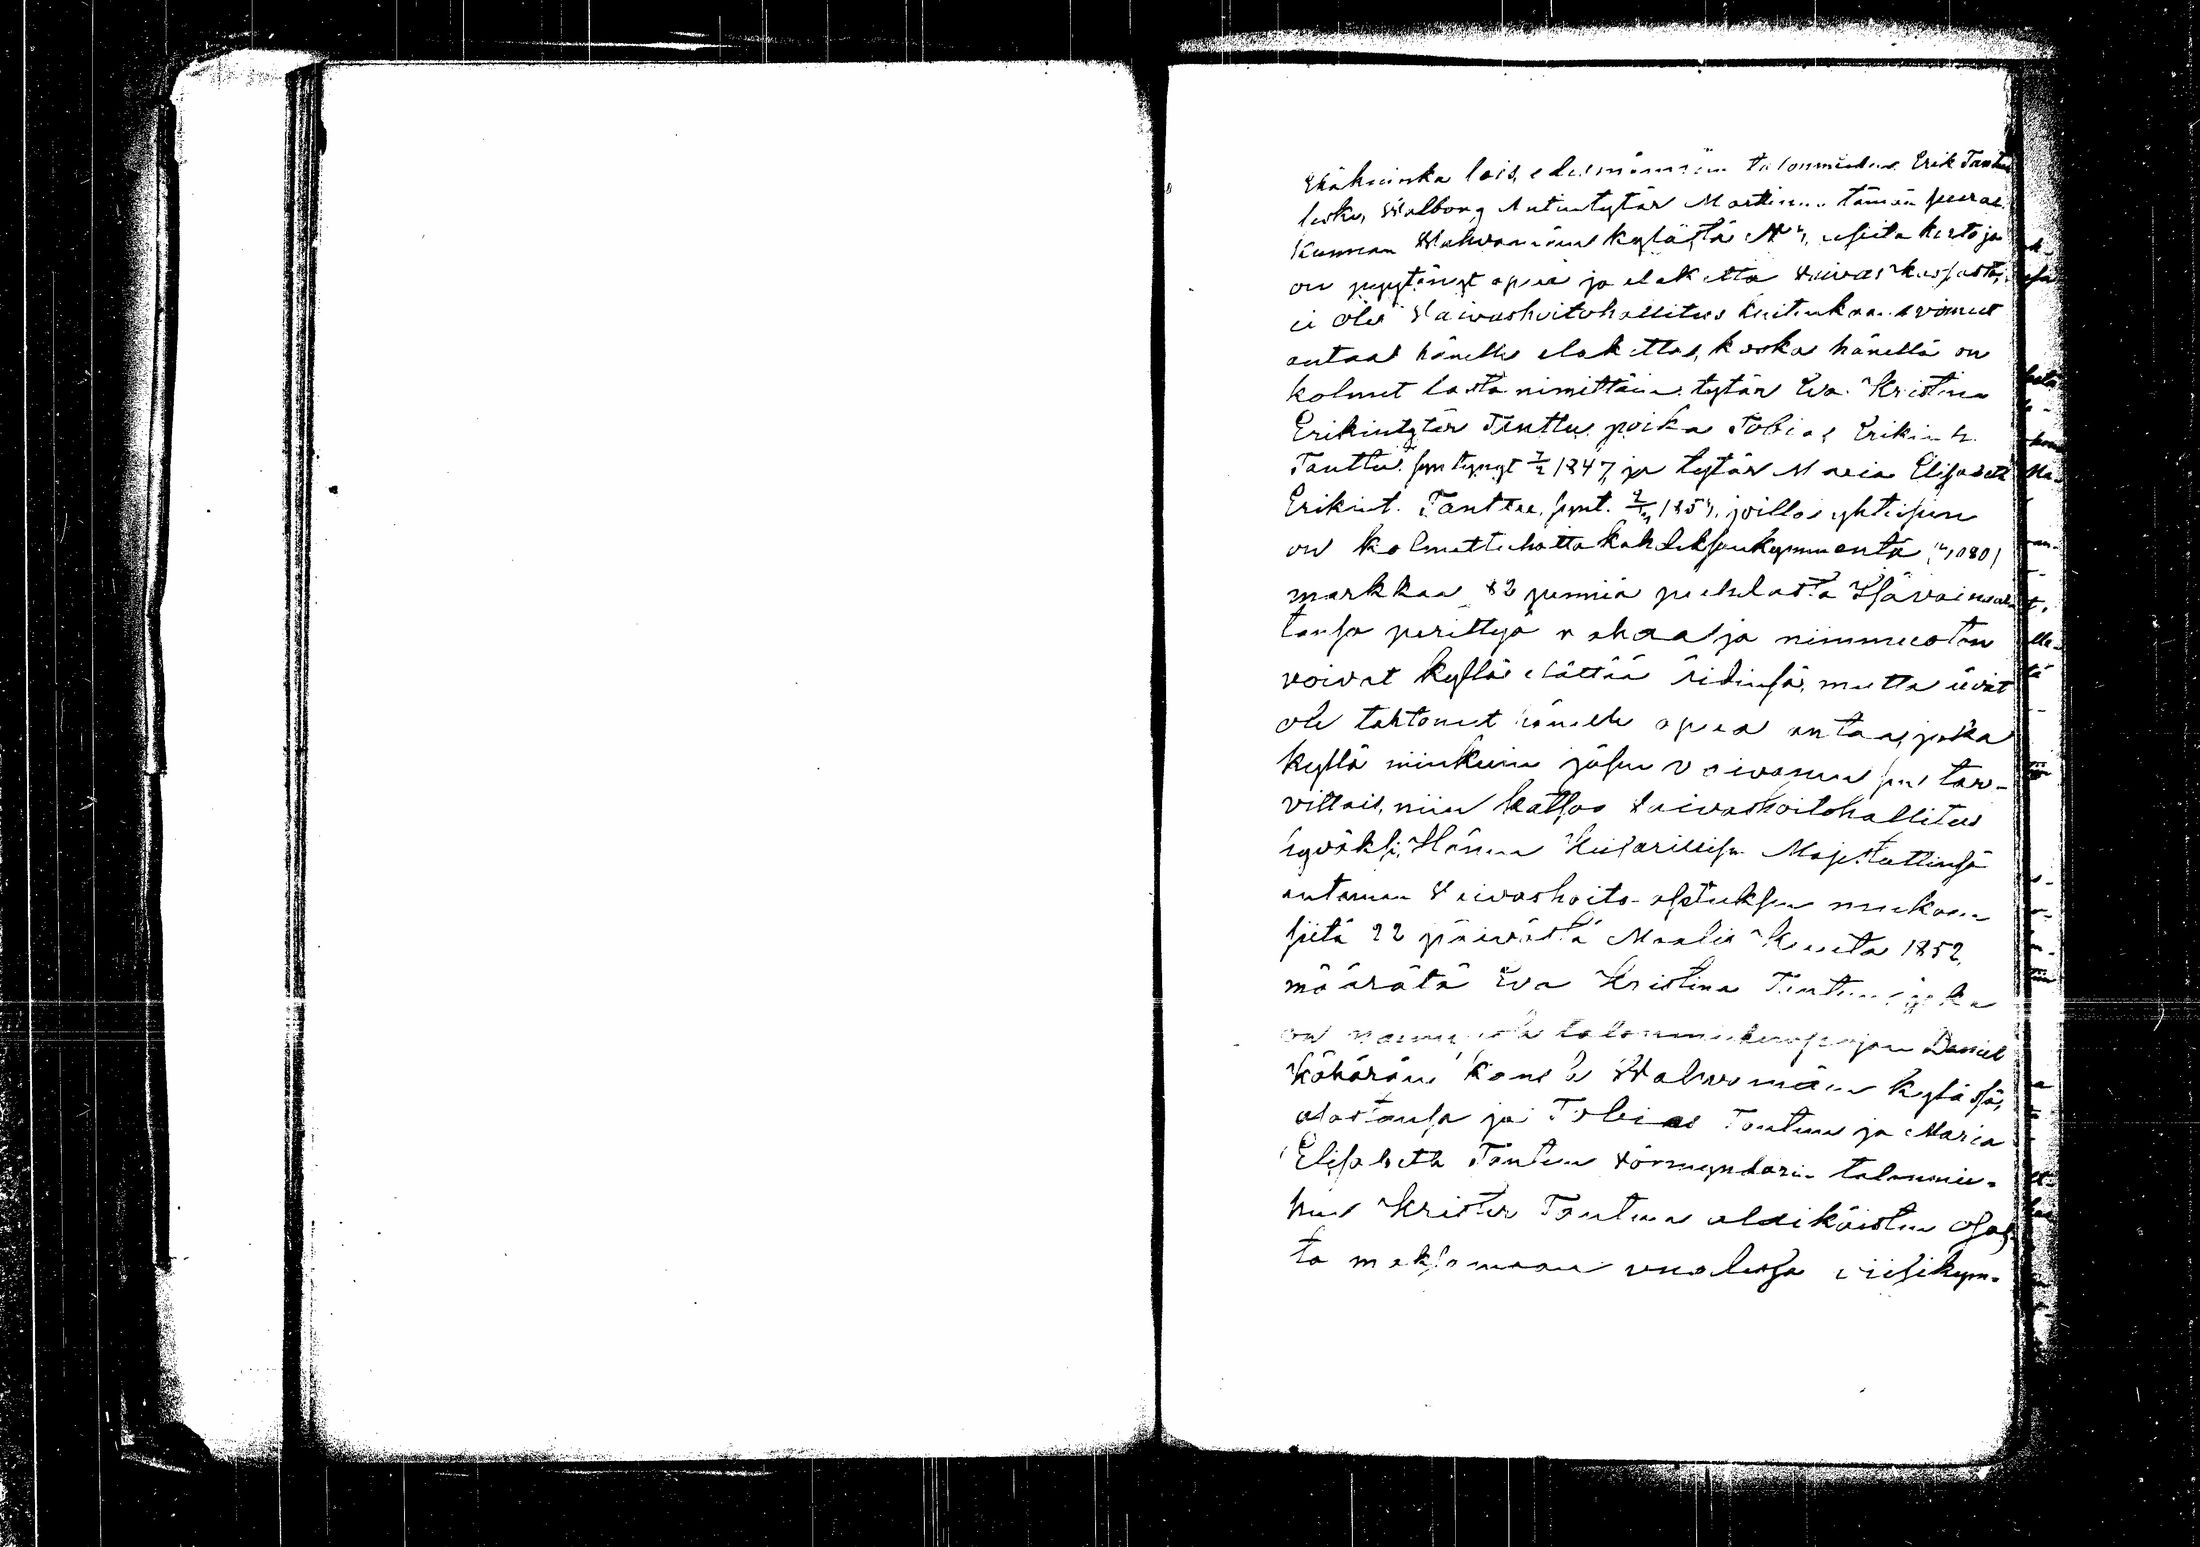 Ehkäkuinka lois, edesmännen talonmiehen Erik Tantun
leski, Walborg Antintytär Martinen tämän seura
kunnan Wahvamäen kylästä N:o, useita kertoja
on pyytänyt apua ja elaketta Waivaskassasta,
ei ole Waivashoitohallitus kuitenkaan voinut
antaa hänelle elaketta, koska hänellä on
kolmet lasta nimittäin: tytär Eva Kristina
Erikintytär Tanttu, poika Tobias Erikin p.
Tanttu, syntynyt 7/2 1847, ja tytär Maria Elisabeth
Erikint. Tanttu, synt. 1854, joilla yhteisen
on kolmettuhatta kahdeksankymmentä (3,080)
markkaa 82 penniä puhdasta Isävainaal
tansa perittyä rahaa ja nimmuoton
voivat kyllä elättää äidinsä, mutta eivät
ole tahtonet hänelle apua antaa, joka
kyllä niinkuin jäsen vaivanen sen tar-
vittais, niin katsoo Waivashoitohallitus
hyväksi, Hänen Keisarillisen Majestettinsä
antaman Waivashoito-asetuksen mukaan
siitä 22 päivästä Maalis Kuuta 1852,
määrätä Eva Kristina Tantun, joka
on talonmiehen pojan Daniel
Köhärän kans Wahvamäen kylässä,
osastansa ja Tobias Tantun ja Maria
Elisabeth Tantun Förmyndarin talonmie-
hen Krister Tantun alaikäisten osas
ta maksamaan vuodessa viisikym-